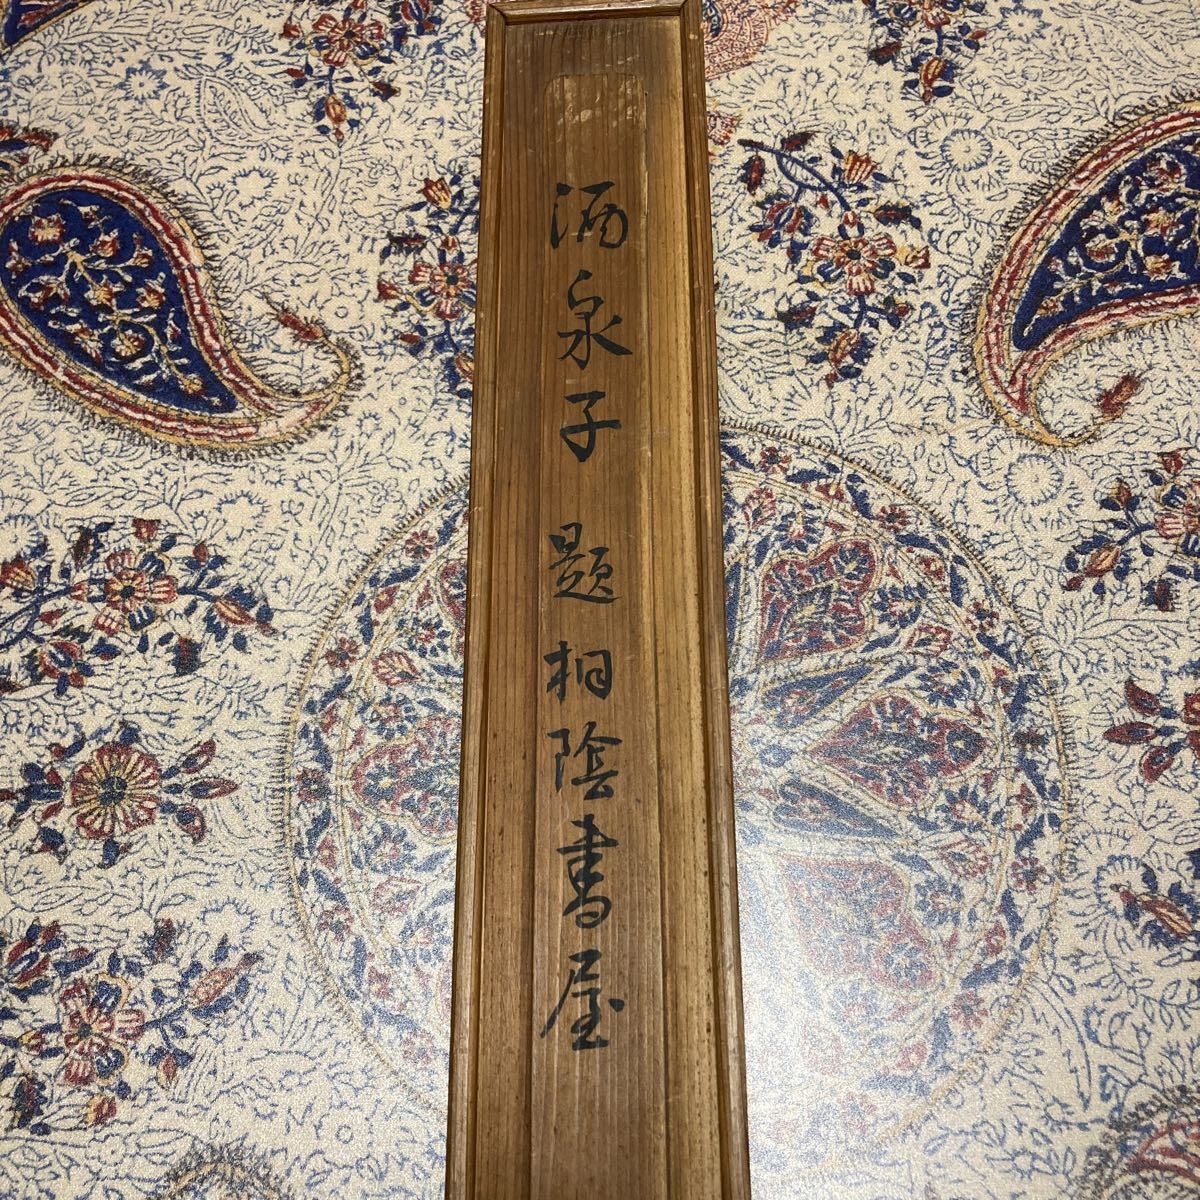 酒泉子 題桐陰書屋